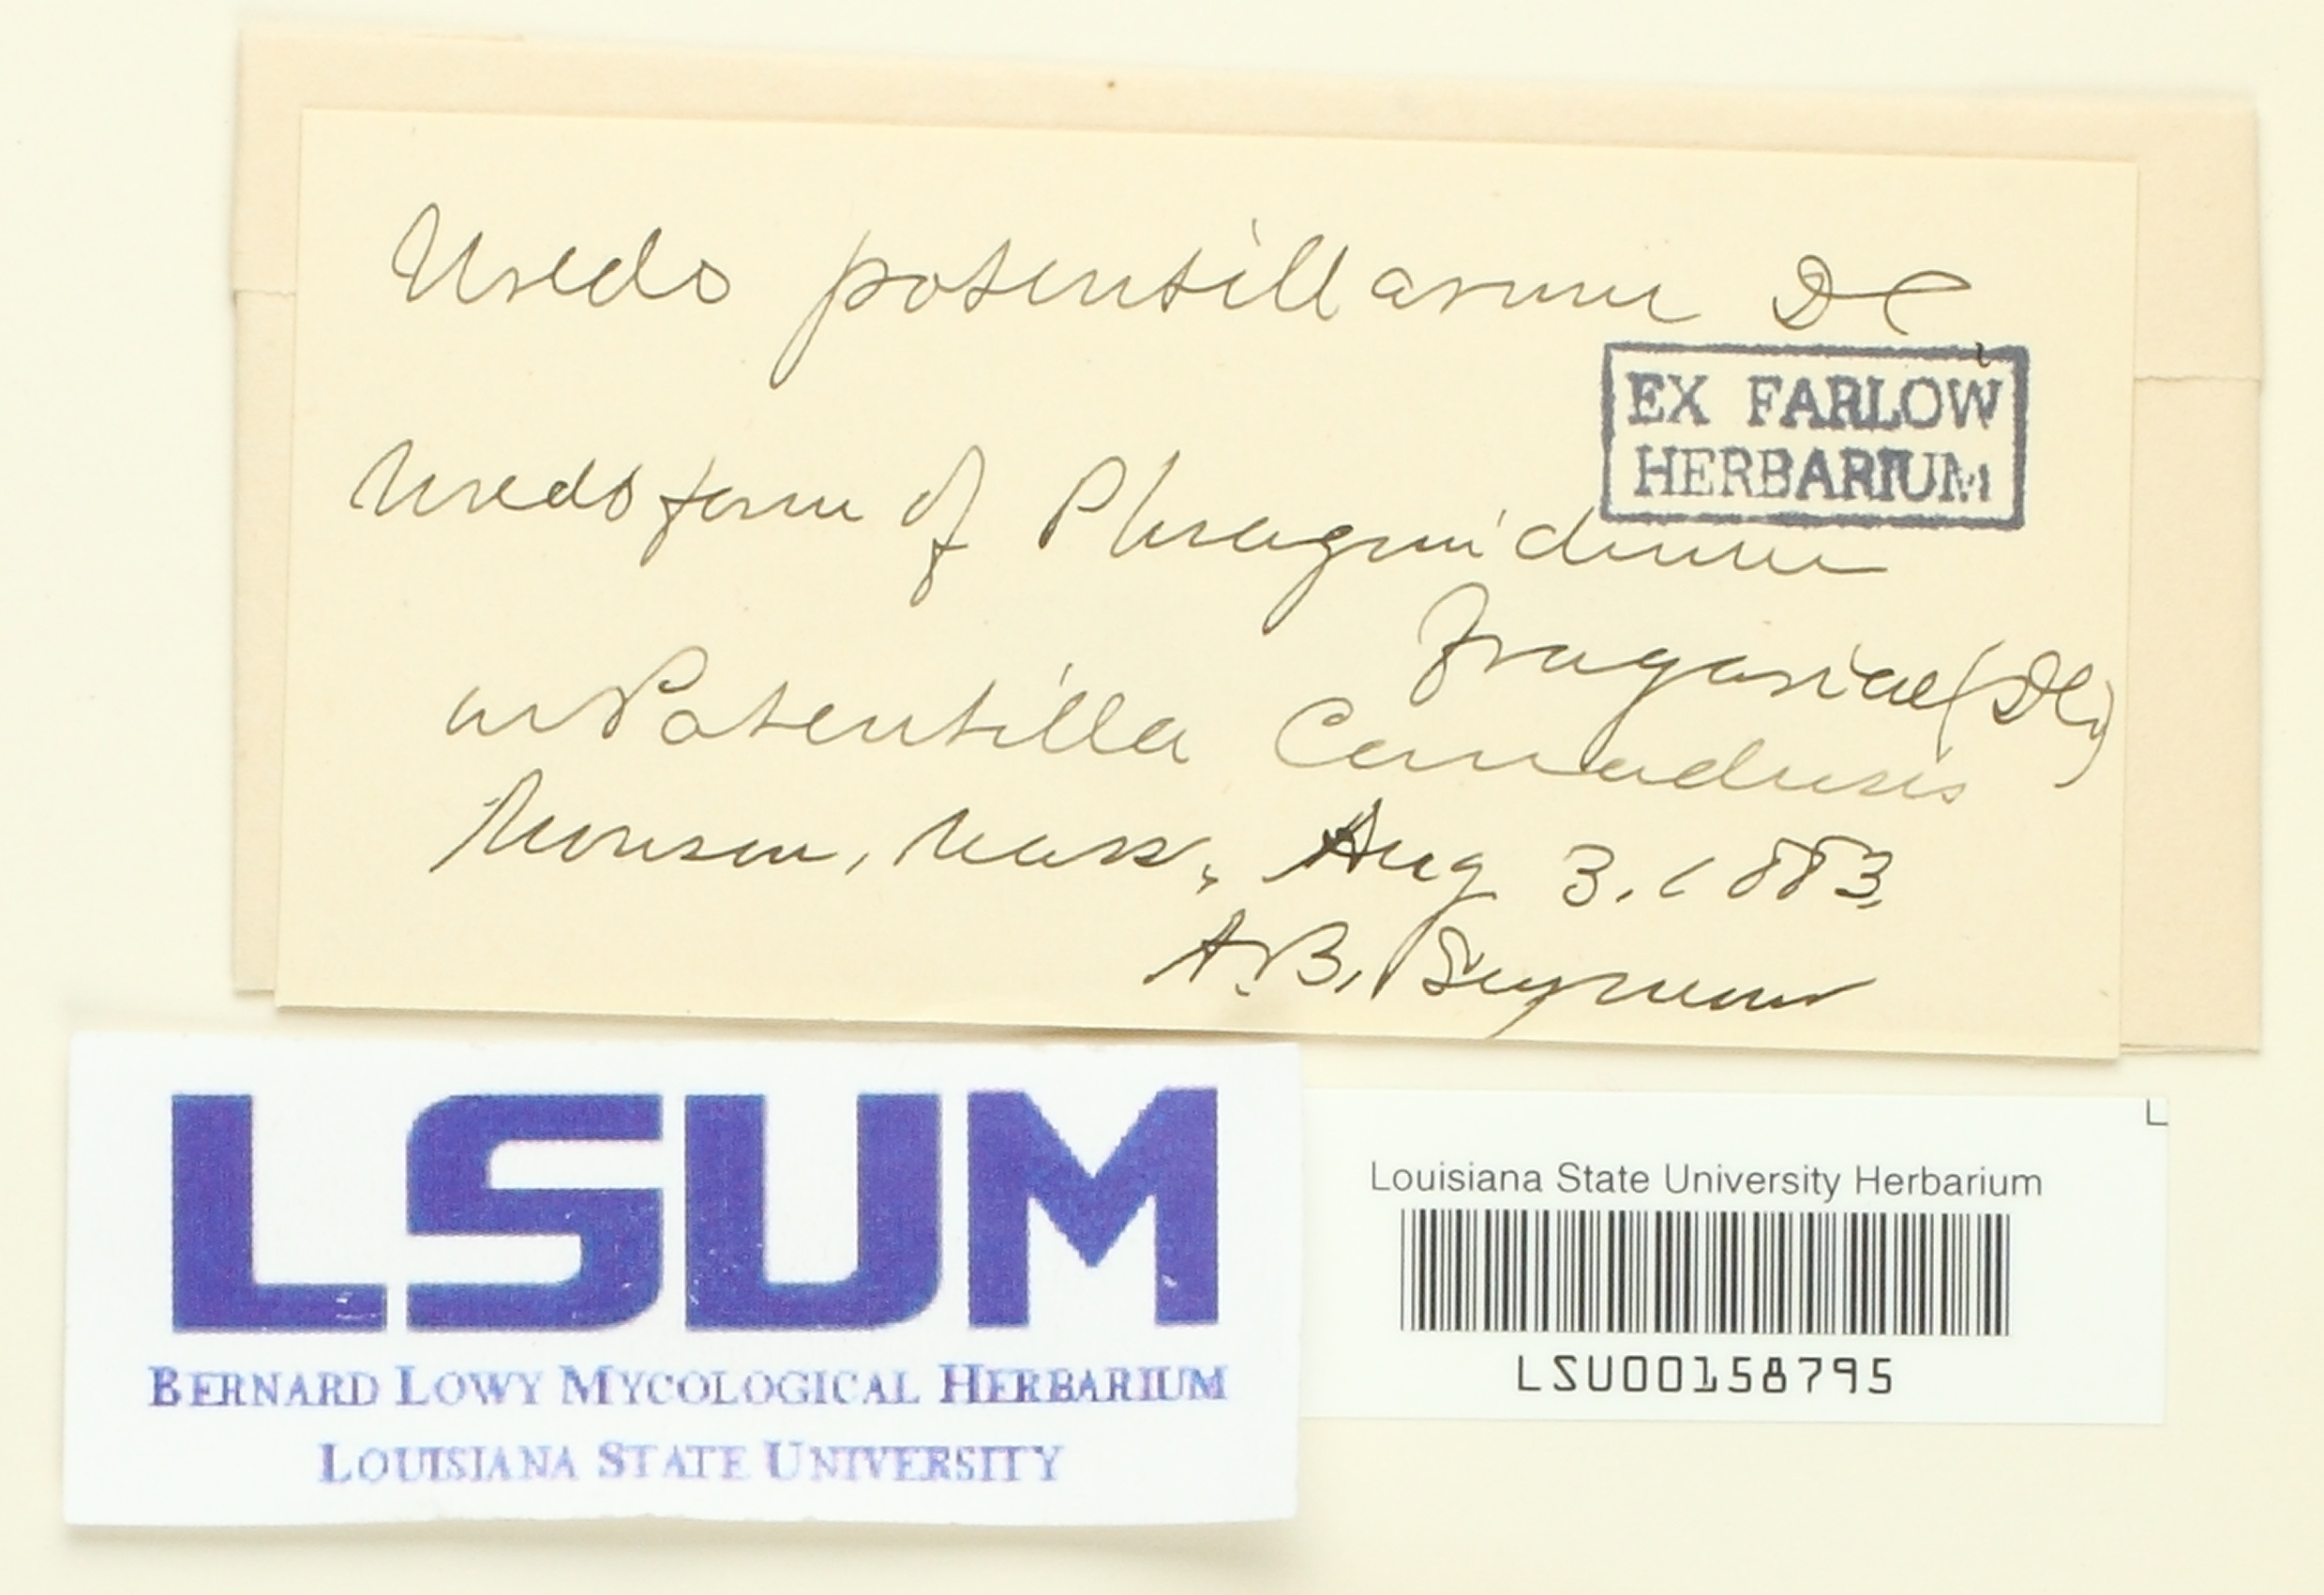 Uredo potentillarum DC
EX FARLOW
HERBARIUM
Uredo form of Phragmidium
fragariae (DC,)
on Potentilla Canadensis
Monson, Mass., Aug 3, 1883,
A.B. Seymour
LSUM
BERNARD LOWY MYCOLOGICAL HERBARIUM
LOUISIANA STATE UNIVERSITY
L
Louisiana State University Herbarium
LSU00158795